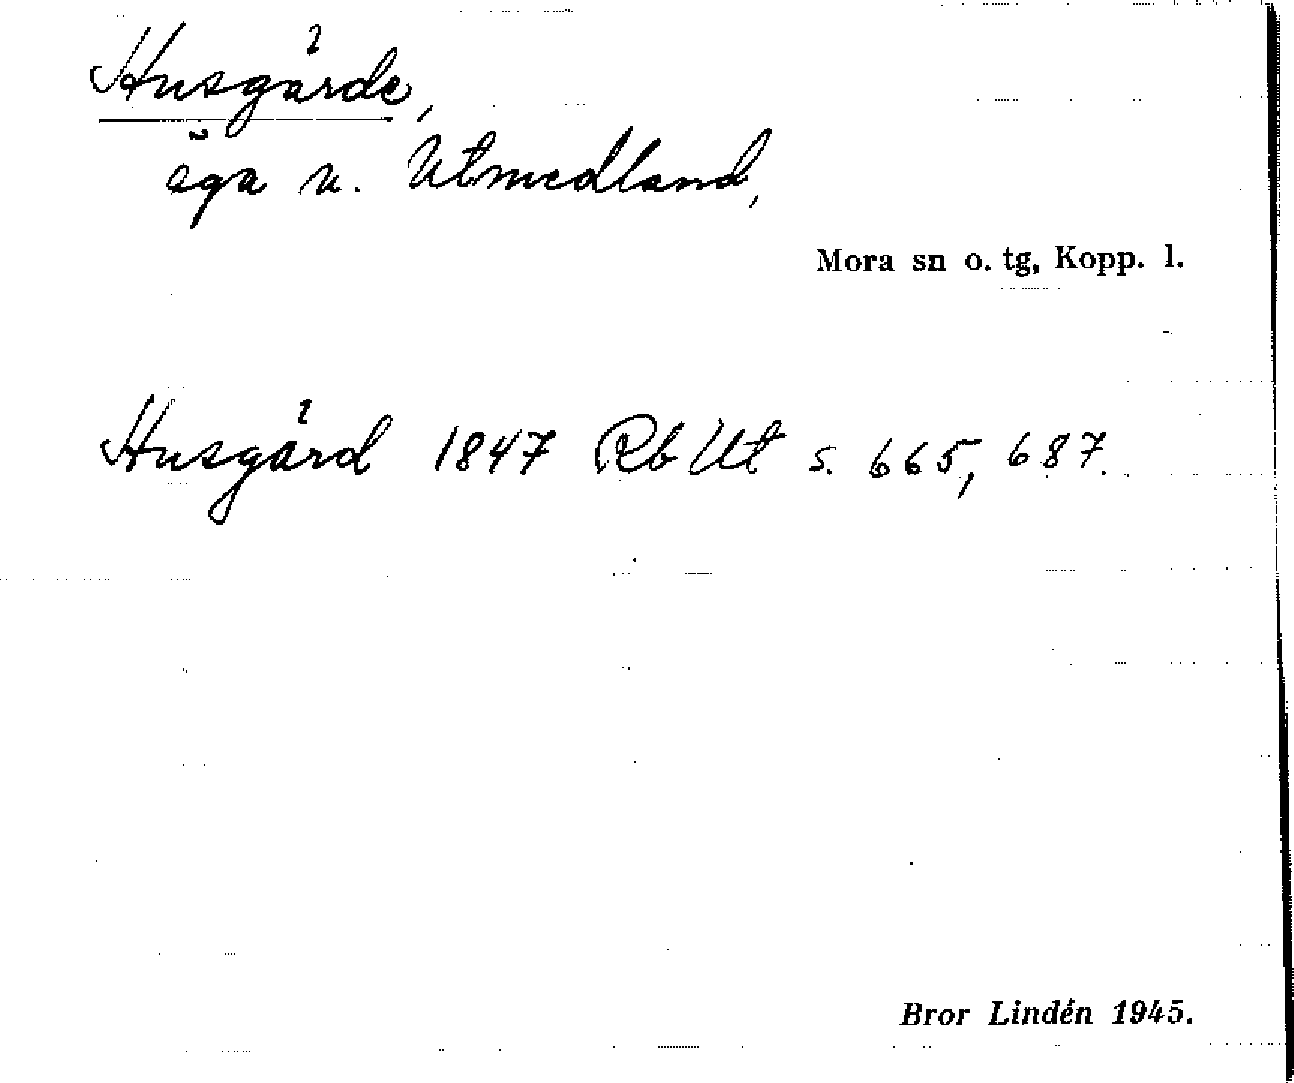 Husgärde,
äga u. Utmedland,
Mora sn o. tg, Kopp. l.
Husgärd 1847 Rb Ut s. 665, 687.
Bror Lindén 1945.